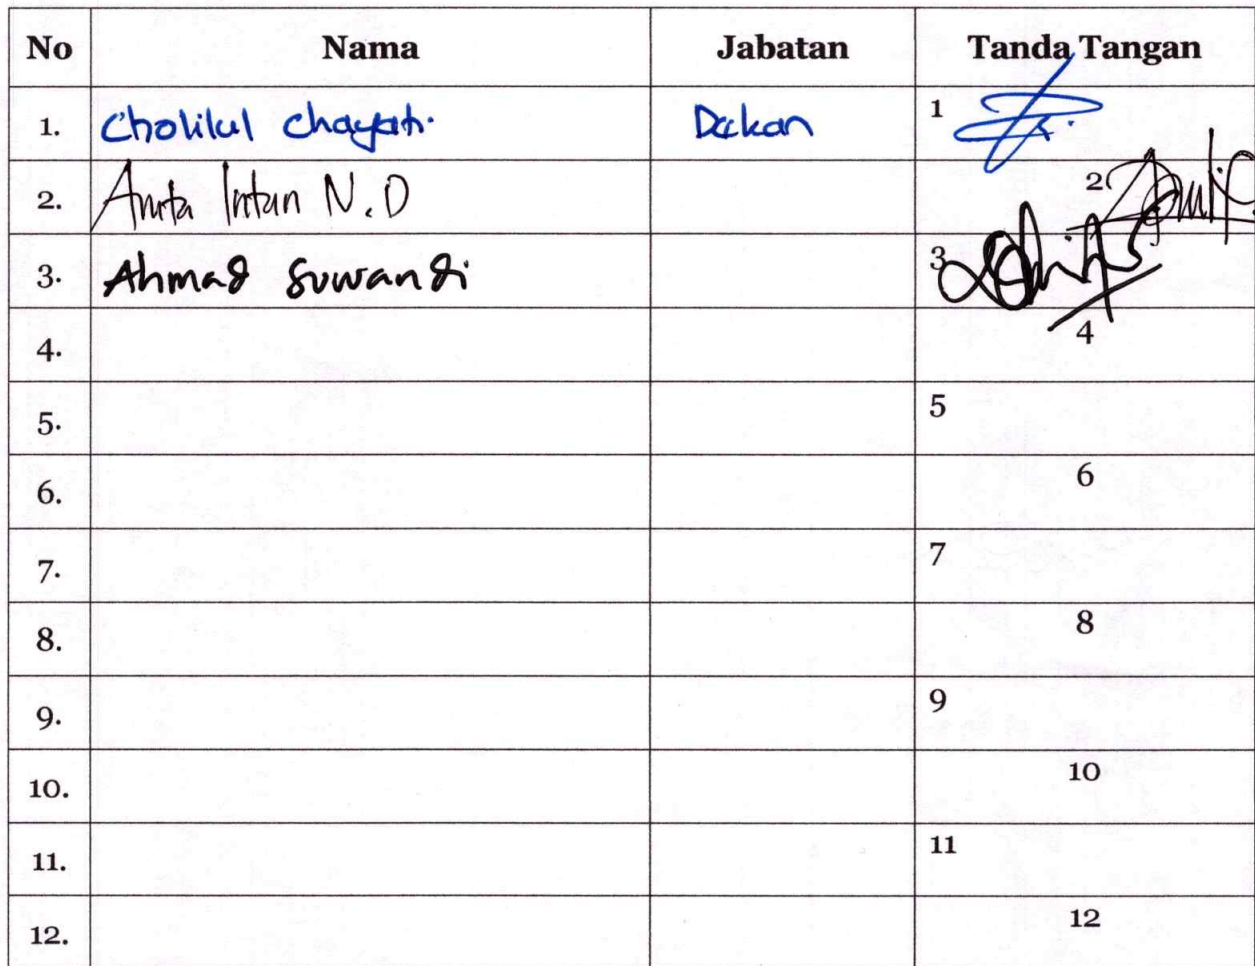 No Nama Jabatan Tanda Tangan
1. Cholilul Chayati. Dekan 1
2. Anita Intan N.D 2
3. Ahmad Suwandi 3
4. 4
5. 5
6. 6
7. 7
8. 8
9. 9
10. 10
11. 11
12. 12